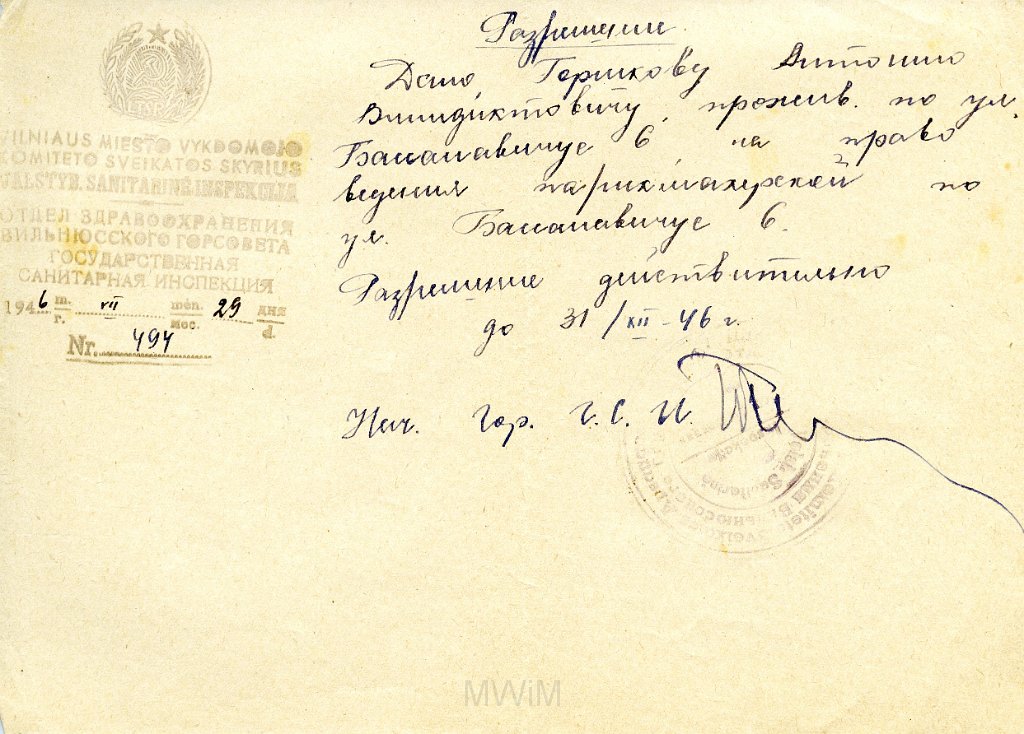 VILNIAUS MIESTO VYKDOMOJO
KOMITETO SVEIKATOS SKYRIUS
VALSTYB. SANITARINĖ INSPEKCIJA
ОТДЕЛ ЗДРАВООХРАНЕНИЯ
ВИЛЬНЮССКОГО ГОРСОВЕТА
ГОСУДАРСТВЕННАЯ
САНИТАРНАЯ ИНСПЕКЦИЯ
1946 m. г. VII mėn. мес. 29 дня d.
Nr. 494
Разрешение
Дано Горшкову Антонию
Винидиктовичу, прожив. по ул.
Басанавичус 6, на право
ведения парикмахерской по
ул. Басанавичус 6.
Разрешение действительно
до 31/XII-46 г.
Нач. Гор. Г. С. И.
MWiM